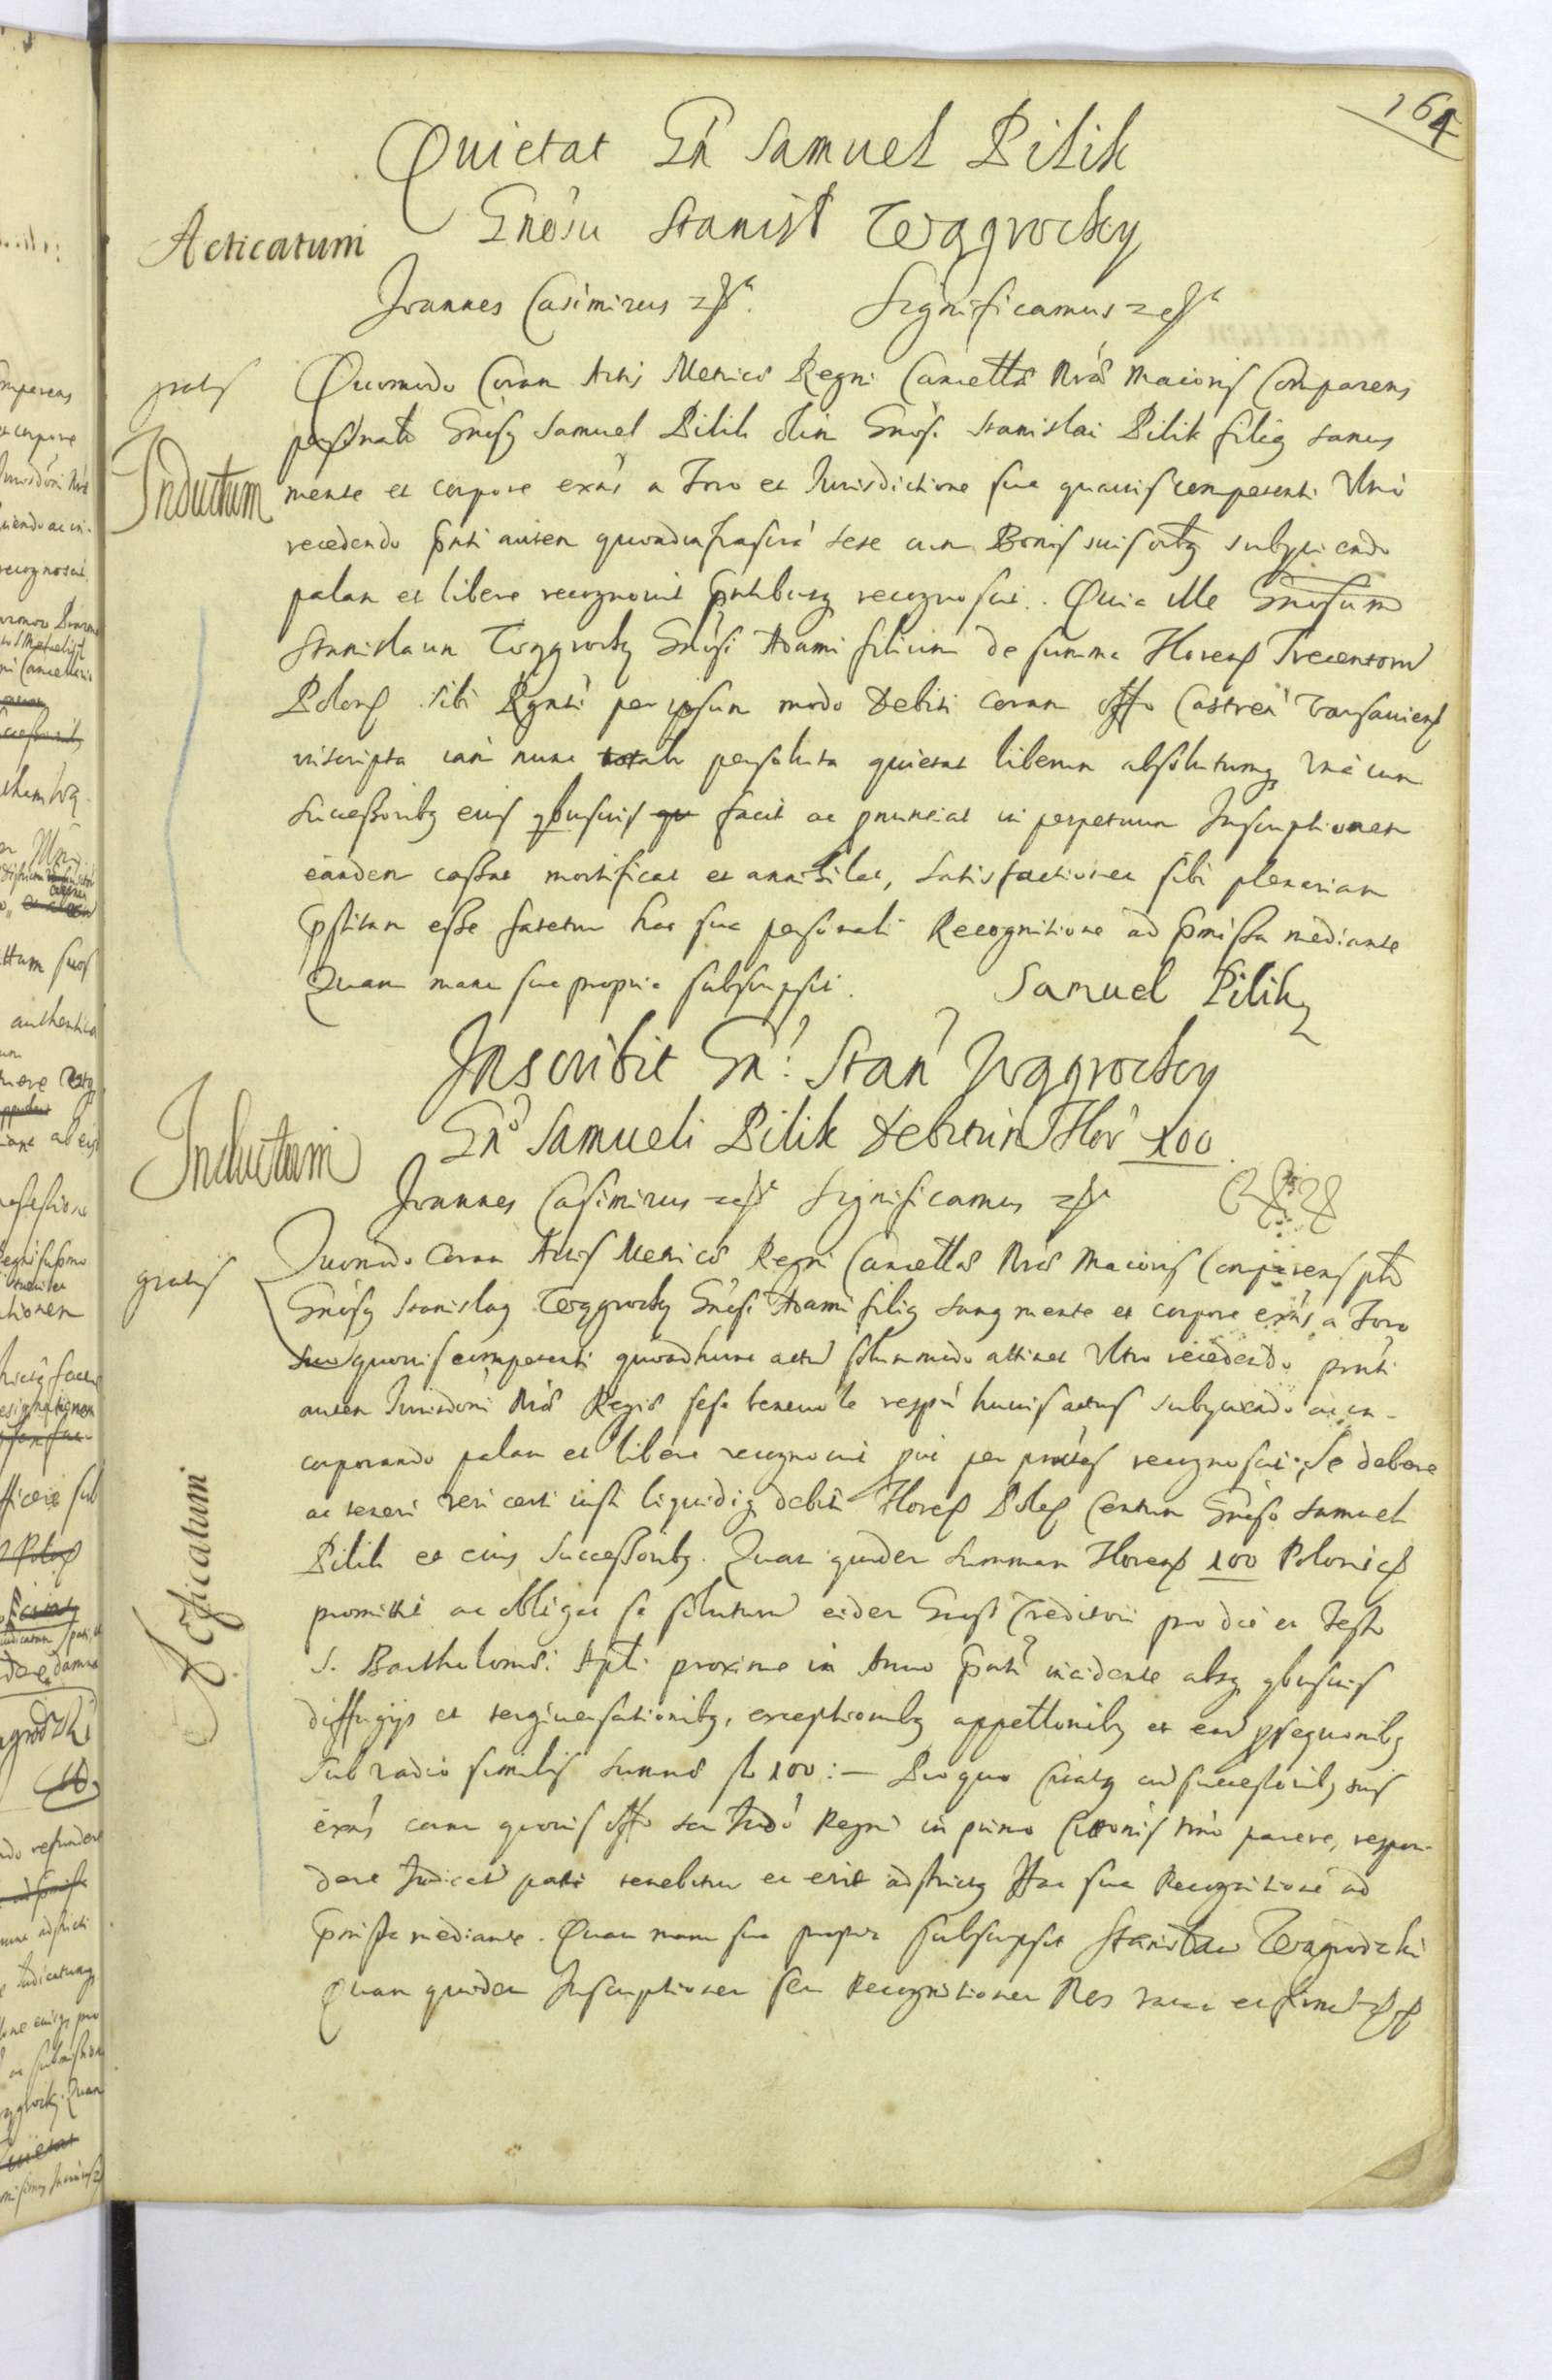 164
Quietat Gn Samuel Pilik
Gnosu Stanisł Węgrocky
Acticatum
Joannes Casimirus Significamus
gratis
Quomodo Coram Actis Metrices Regni Cancellae Nrae Maioris Comparens
Inductum
personalr Gnosus Samuel Pilik olim Gnosi Stanislai Pilik filius sanus
mente et corpore exns a Foro et Jurisdictione sua quavis competenti Ultro
recedendo pnti autem quoad infrascra sese cum Bonis suis oibus subyciendo
palam et libere recognovit pntibusq recognoscit. Quia ille Gnosum
Stanislaum Węgrocky Gnosi Adami filium de summa Florenos Trecentorum
Polon. sibi Rgnti per ipsum modo Debiti coram offo Castren Varsavien
inscripta iam nunc totalr persoluta quietat liberum absolutumq unacum
Successoribus eius quibusvis qu facit ac pnunciat in perpetuum Inscriptionem
eandem cassat mortificat et annihilat, Satisfactionem sibi plenariam
pstitam esse fatetur hac sua personali Recognitione ad pmissa mediante
Quam manu sua propria subscripsit. Samuel Pilik
Inscribit Gn: Stan Węgrocky
Gno Samueli Pilik Debitum Flor 100
Inductum
Joannes Casimirus Significamus
gratis
Quomodo Coram Actis Metrices Regni Cancellae Nrae Maioris Comparens plr
Gnosus Stanislaus Węgrocky Gnosi Adami filius sanus mente et corpore exns a Foro
suo quovis competenti quoad hunc actum solummodo attinet Ultro recedendo pnti
autem Jurisdoni Nrae Regiae sese benevole respu huius actus subyciendo ac in-
corporando palam et libere recognovit pnt per pntes recognoscit. Se debere
ac teneri veri certi iusti liquidiq debiti Flores Poles Centum Gnoso Samueli
Pilik et eius Successoribus. Quam quidem Summam Florens 100 Polonics
Acticatum
promittit ac obligat se soluturum eidem Gnoso Creditori pro die et Festo
S. Bartholomaei Apli proxime in Anno pnti incidente absq quibusvis
diffugys et tergiversationibus, exceptionibus appellonibus et earum psequonibus
Sub vadio similis Summae fl 100: — Pro quo Citatus cum successoribus suis
exns coram quovis offo seu Judo Regni in primo Cittonis tnno parere, respon-
dere Judicatum pati tenebitur et erit adstrictus Hac sua Recognitione ad
pmissa mediante. Quam manu sua propria subscripsit Stanisław Węgrodzki
Quam quidem Inscriptionem seu Recognitionem Nos ratam et firmam